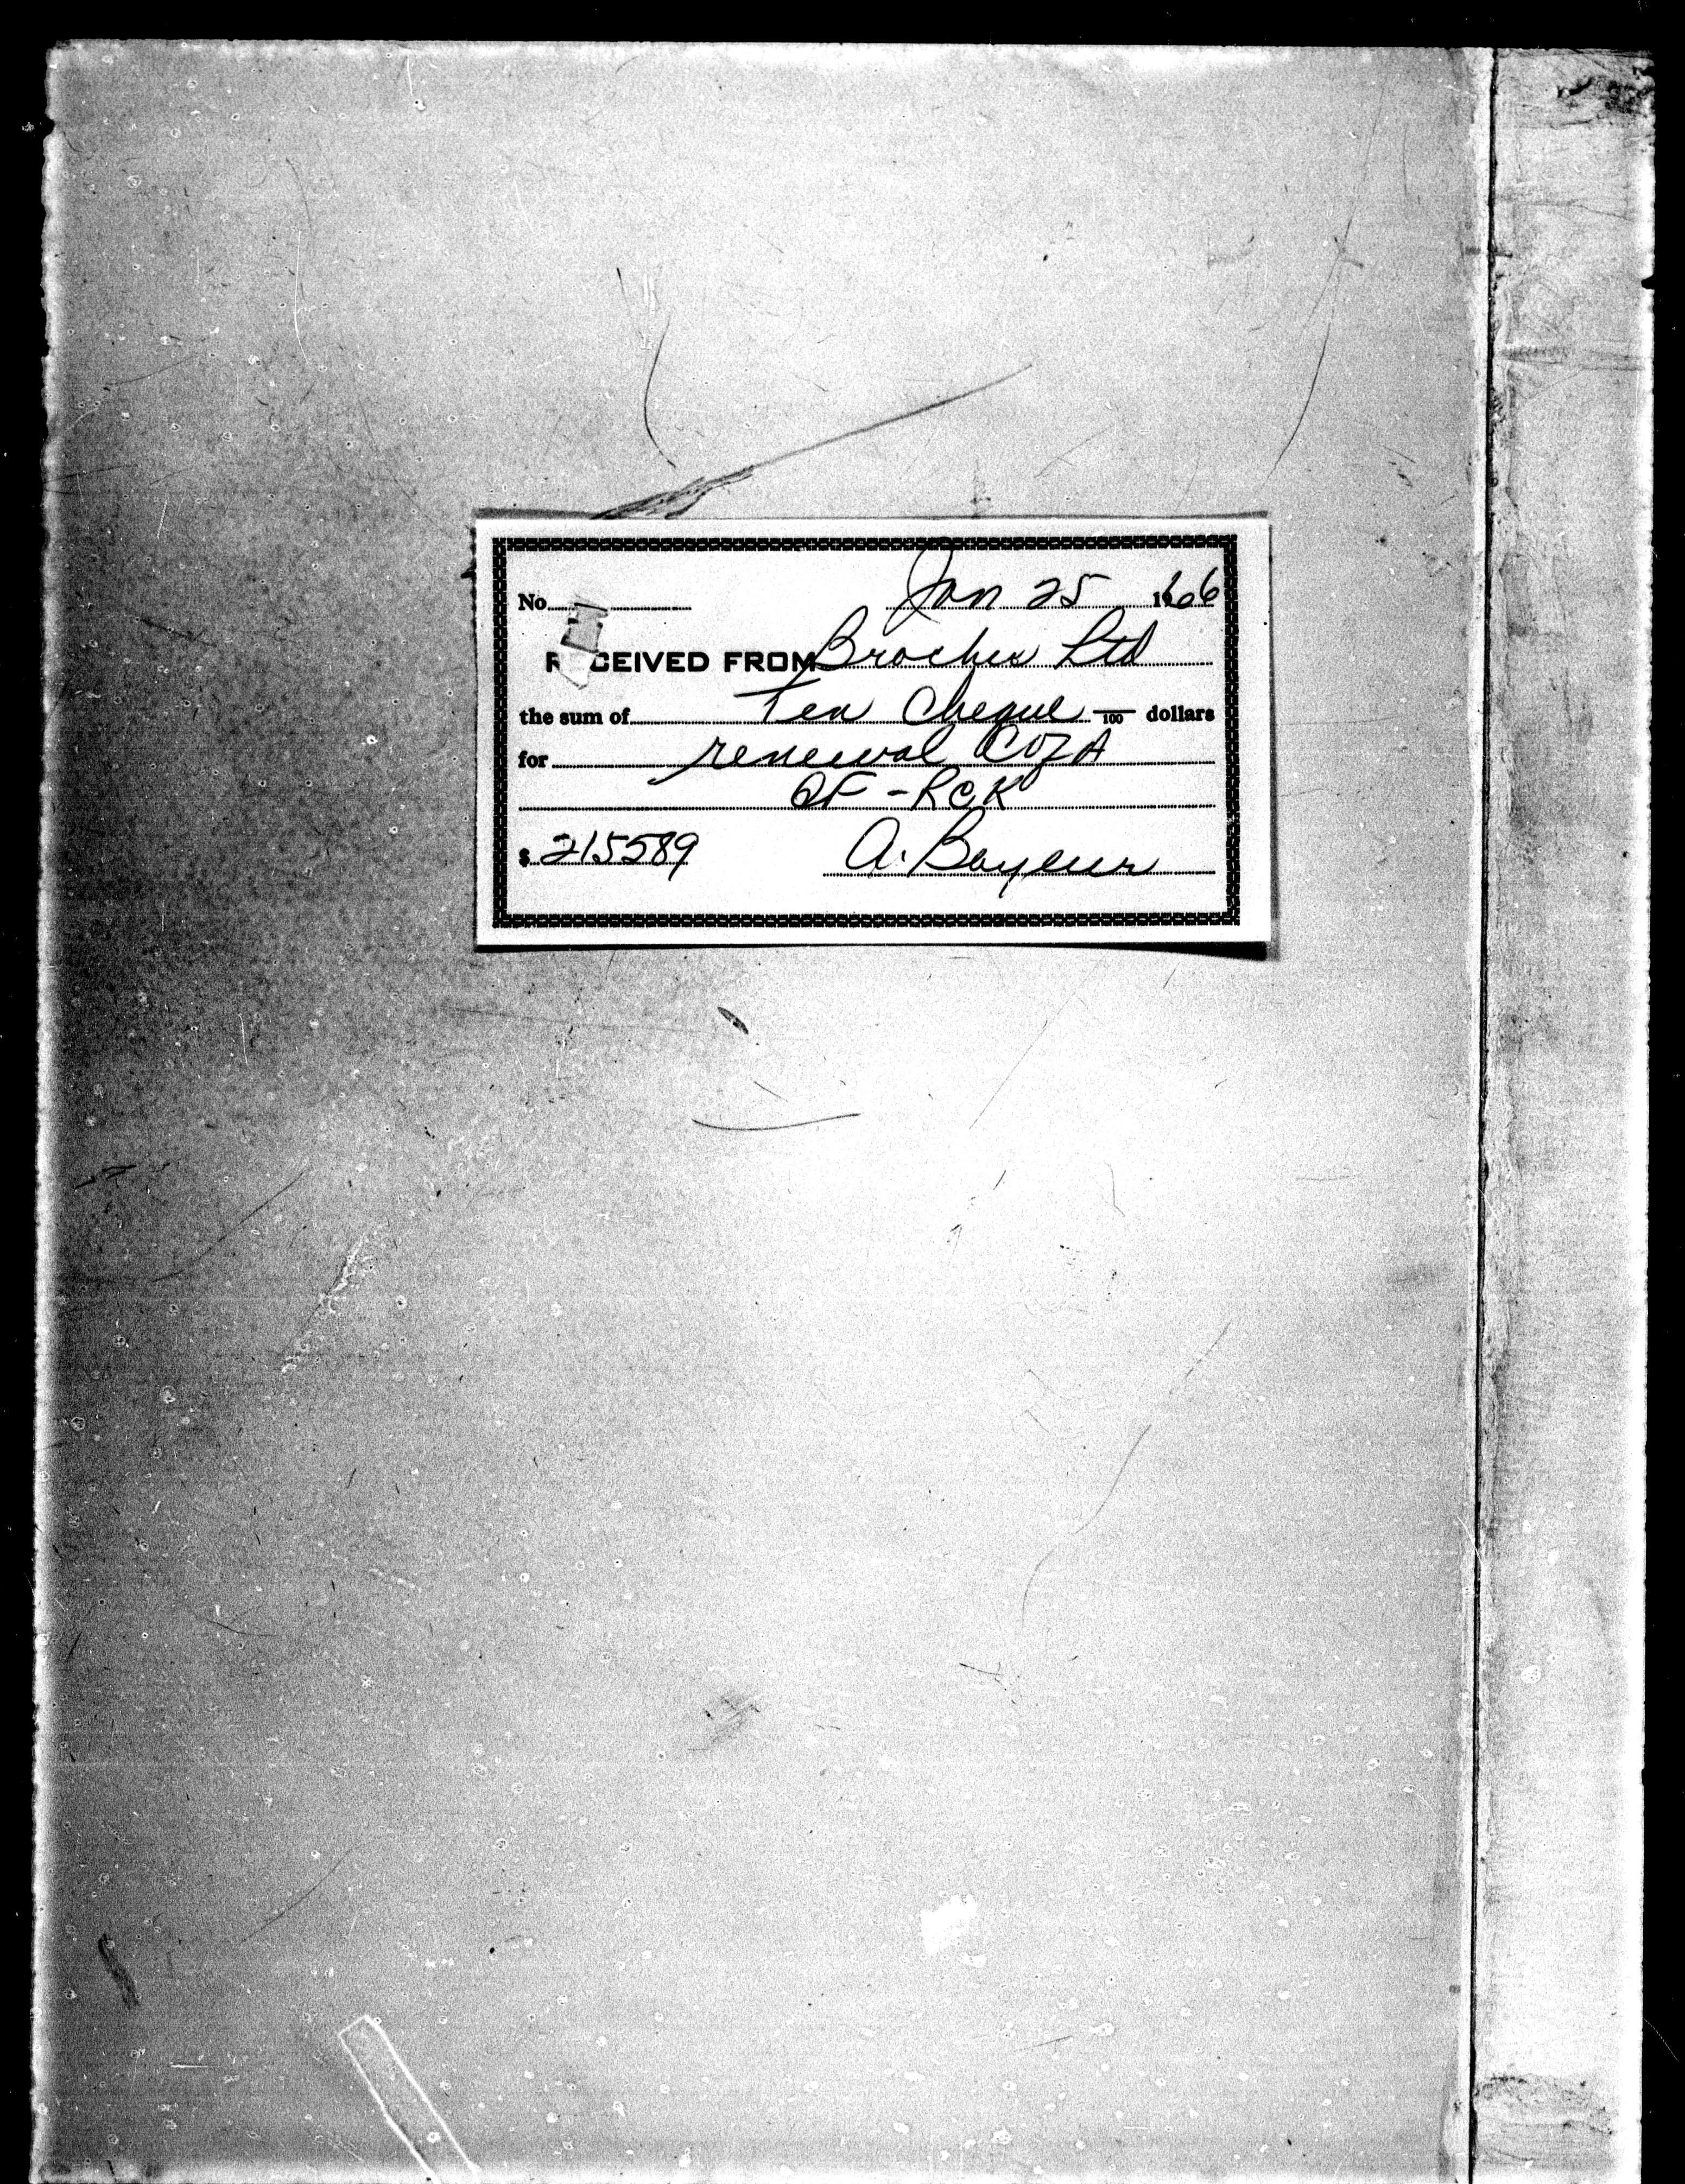 No. Jan 25 1966
RECEIVED FROM Broches Ltd
the sum of ten Cheque 100 dollars
for renewal CofA
QF-RCK
$ 215589 A. Bayeur